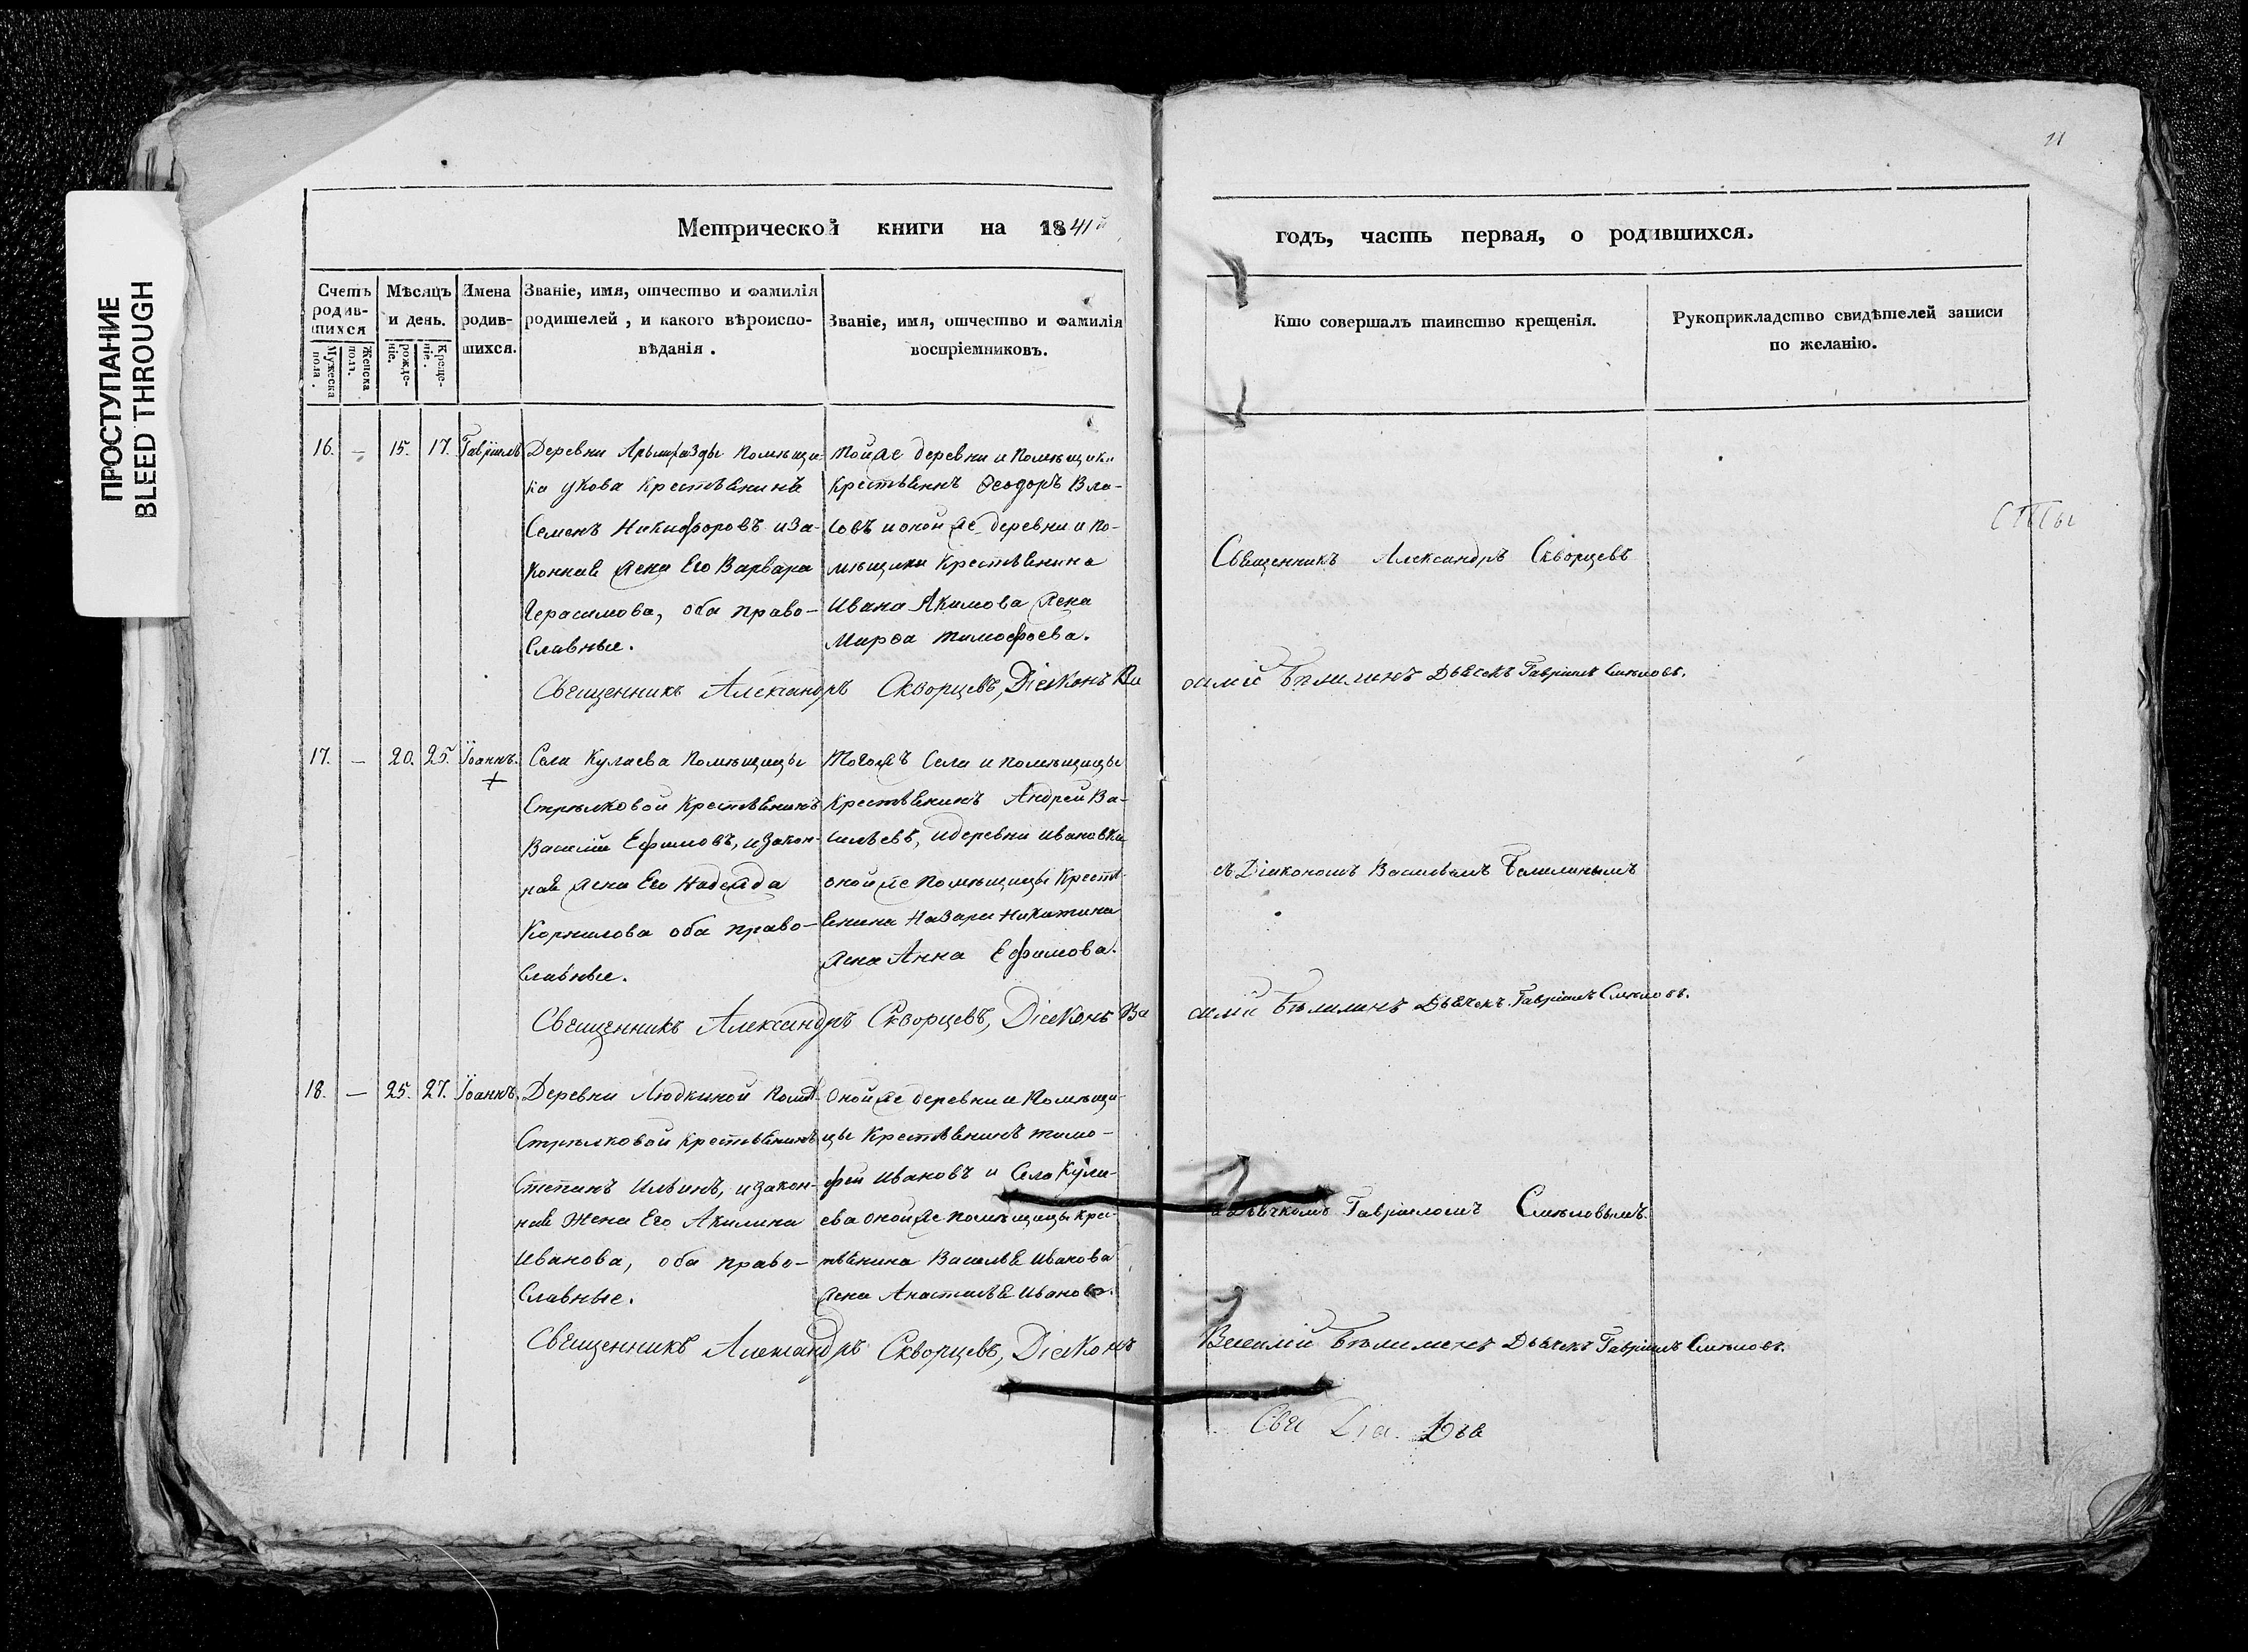 ПРОСТУПАНИЕ
BLEED THROUGH
21
Метрической книги на 1841й
годъ, часть первая, о родившихся.
Счетъ родив-шихся
Мужеска пола.
Женска пола.
Мѣсяцъ и день.
рожде-ніе.
Креще-ніе.
Имена родив-шихся.
Званіе, имя, отчество и фамилія
родителей, и какого вѣроиспо-
вѣданія.
Званіе, имя, отчество и фамилія
воспріемниковъ.
Кто совершалъ таинство крещенія.
Рукоприкладство свидѣтелей записи
по желанію.
16. — 15. 17. Гавріилъ
Деревни помѣщи-
ка Укова Крестьянинъ
Семенъ Никифоровъ и за-
конная жена Его Варвара
Герасимова, оба право-
славные.
Той же деревни и помѣщика
Крестьянинъ Ѳеодоръ Вла-
совъ и оной же деревни и по-
мѣщика Крестьянина
Ивана Акимова жена
Марѳа Тимофѣева.
Священникъ Александръ Скворцевъ
Священникъ Александръ Скворцевъ, Діаконъ Ва
силій Бѣлилинъ Дьячекъ Гавріилъ Смѣловъ.
17. — 20. 25. Іоаннъ.
+
Села Кулаева помѣщицы
Стрѣлковой Крестьянинъ
Василій Ефимовъ, и закон-
ная жена Его Надежда
Корнилова оба право-
славные.
Тогожъ Села и помѣщицы
Крестьянинъ Андрей Ва-
сильевъ, и деревни Ивановки
оной же помѣщицы Кресть-
янина Назара Никитина
жена Анна Ефимова.
съ Діакономъ Васильемъ Бѣлилинымъ
Священникъ Александръ Скворцевъ, Діаконъ Ва
силій Бѣлилинъ Дьячекъ Гавріилъ Смѣловъ.
18. — 25. 27. Іоаннъ.
Деревни Людкиной
Стрѣлковой Крестьянинъ
Степанъ Ильинъ, и закон-
ная Жена Его Акилина
Иванова, оба право-
славные.
Оной же деревни и помѣщи-
цы Крестьянинъ Тимо-
фей Ивановъ и Села Кула-
ева оной же помѣщицы Крес-
тьянина Василья Иванова
жена Анастасья Иванова.
и Дьячкомъ Гавріиломъ Смѣловымъ.
Священникъ Александръ Скворцевъ, Діаконъ
Василій Бѣлилинъ Дьячекъ Гавріилъ Смѣловъ.
Свя Діа. Дья